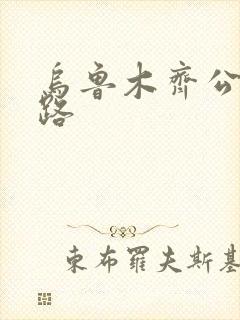 烏魯木齊公
路
東布羅夫斯基